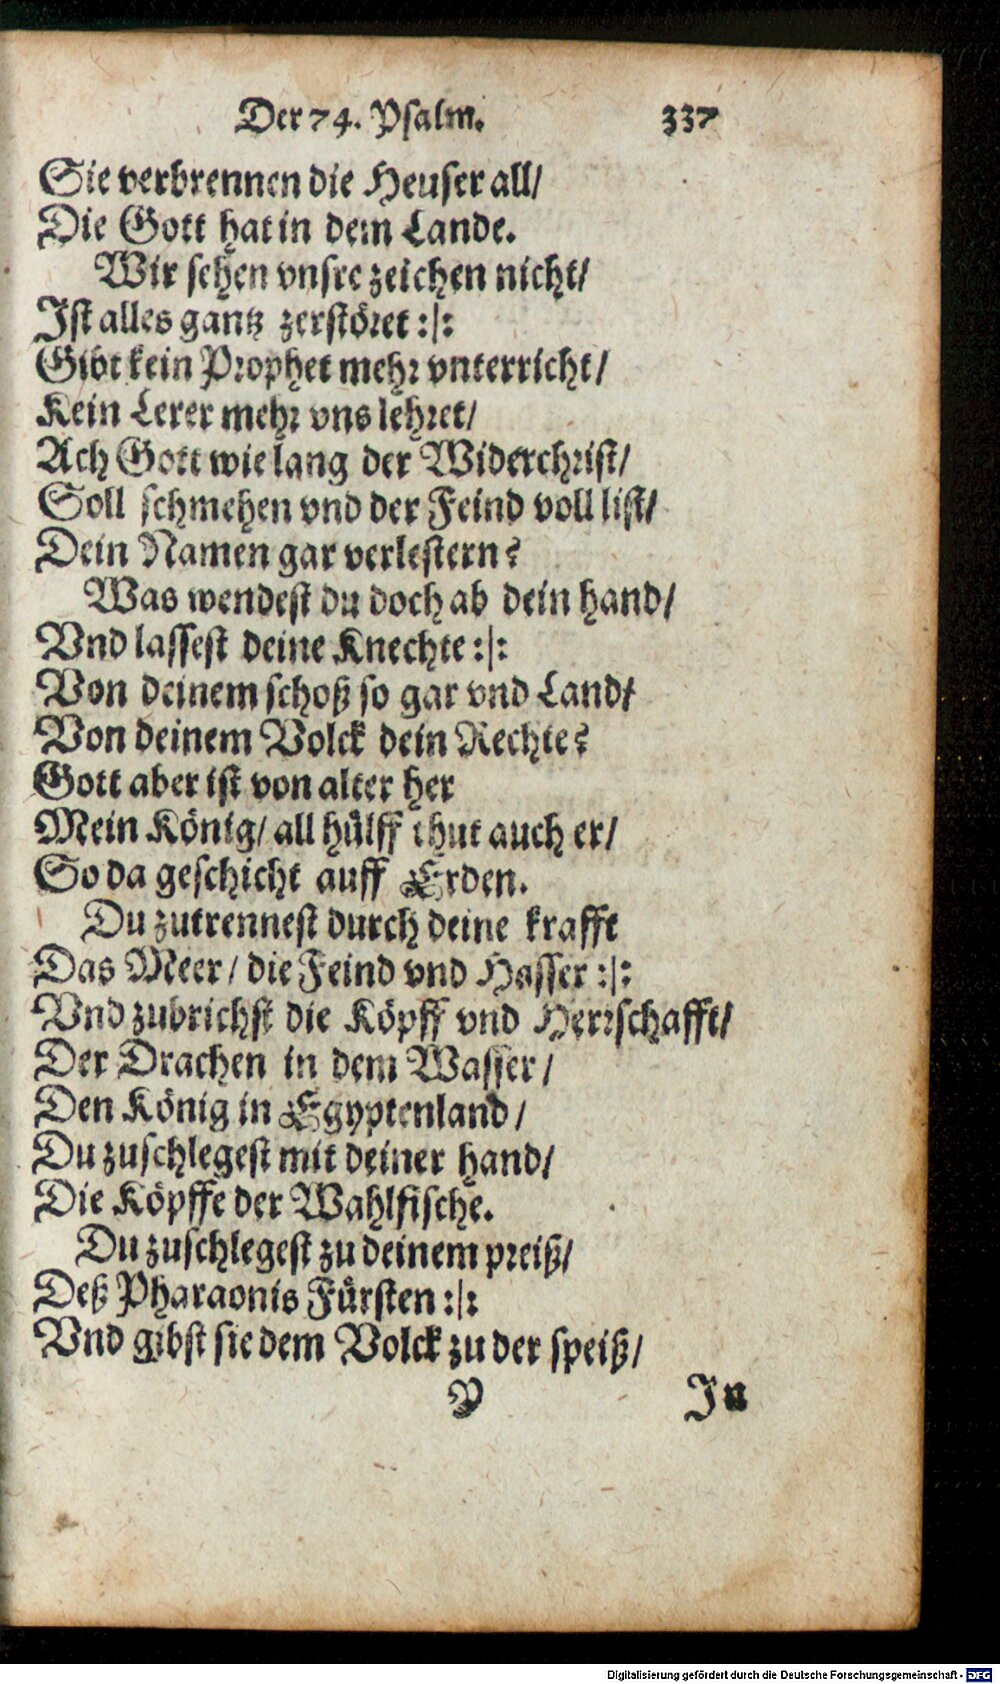 Der 74. Psalm. 337
Sie verbrennen die Heuser all/
Die Gott hat in dem Lande.
Wir sehen vnsre zeichen nicht/
Ist alles gantz zerstöret :|:
Gibt kein Prophet mehr vnterricht/
Kein Lerer mehr vns lehret/
Ach Gott wie lang der Widerchrist/
Soll schmehen vnd der Feind voll list/
Dein Namen gar verlestern?
Was wendest du doch ab dein hand/
Vnd lassest deine Knechte :|:
Von deinem schoß so gar vnd Land/
Von deinem Volck dein Rechte?
Gott aber ist von alter her
Mein König/ all hülff thut auch er/
So da geschicht auff Erden.
Du zutrennest durch deine krafft
Das Meer/ die Feind vnd Hasser :|:
Vnd zubrichst die Köpff vnd Herrschafft/
Der Drachen in dem Wasser/
Den König in Egyptenland/
Du zuschlegest mit deiner hand/
Die Köpffe der Wahlfische.
Du zuschlegest zu deinem preiß/
Deß Pharaonis Fürsten :|:
Vnd gibst sie dem Volck zu der speiß/
Y In
Digitalisierung gefördert durch die Deutsche Forschungsgemeinschaft - DFG